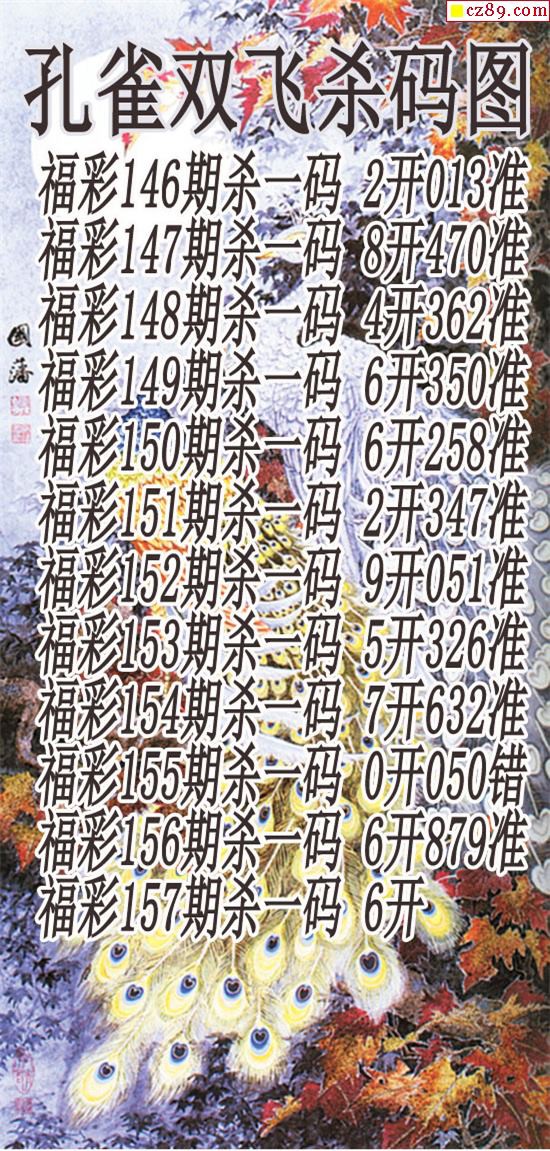 cz89.com
孔雀双飞杀码图
福彩146期杀一码 2开013准
福彩147期杀一码 8开470准
福彩148期杀一码 4开362准
福彩149期杀一码 6开350准
福彩150期杀一码 6开258准
福彩151期杀一码 2开347准
福彩152期杀一码 9开051准
福彩153期杀一码 5开326准
福彩154期杀一码 7开632准
福彩155期杀一码 0开050错
福彩156期杀一码 6开879准
福彩157期杀一码 6开
國藩